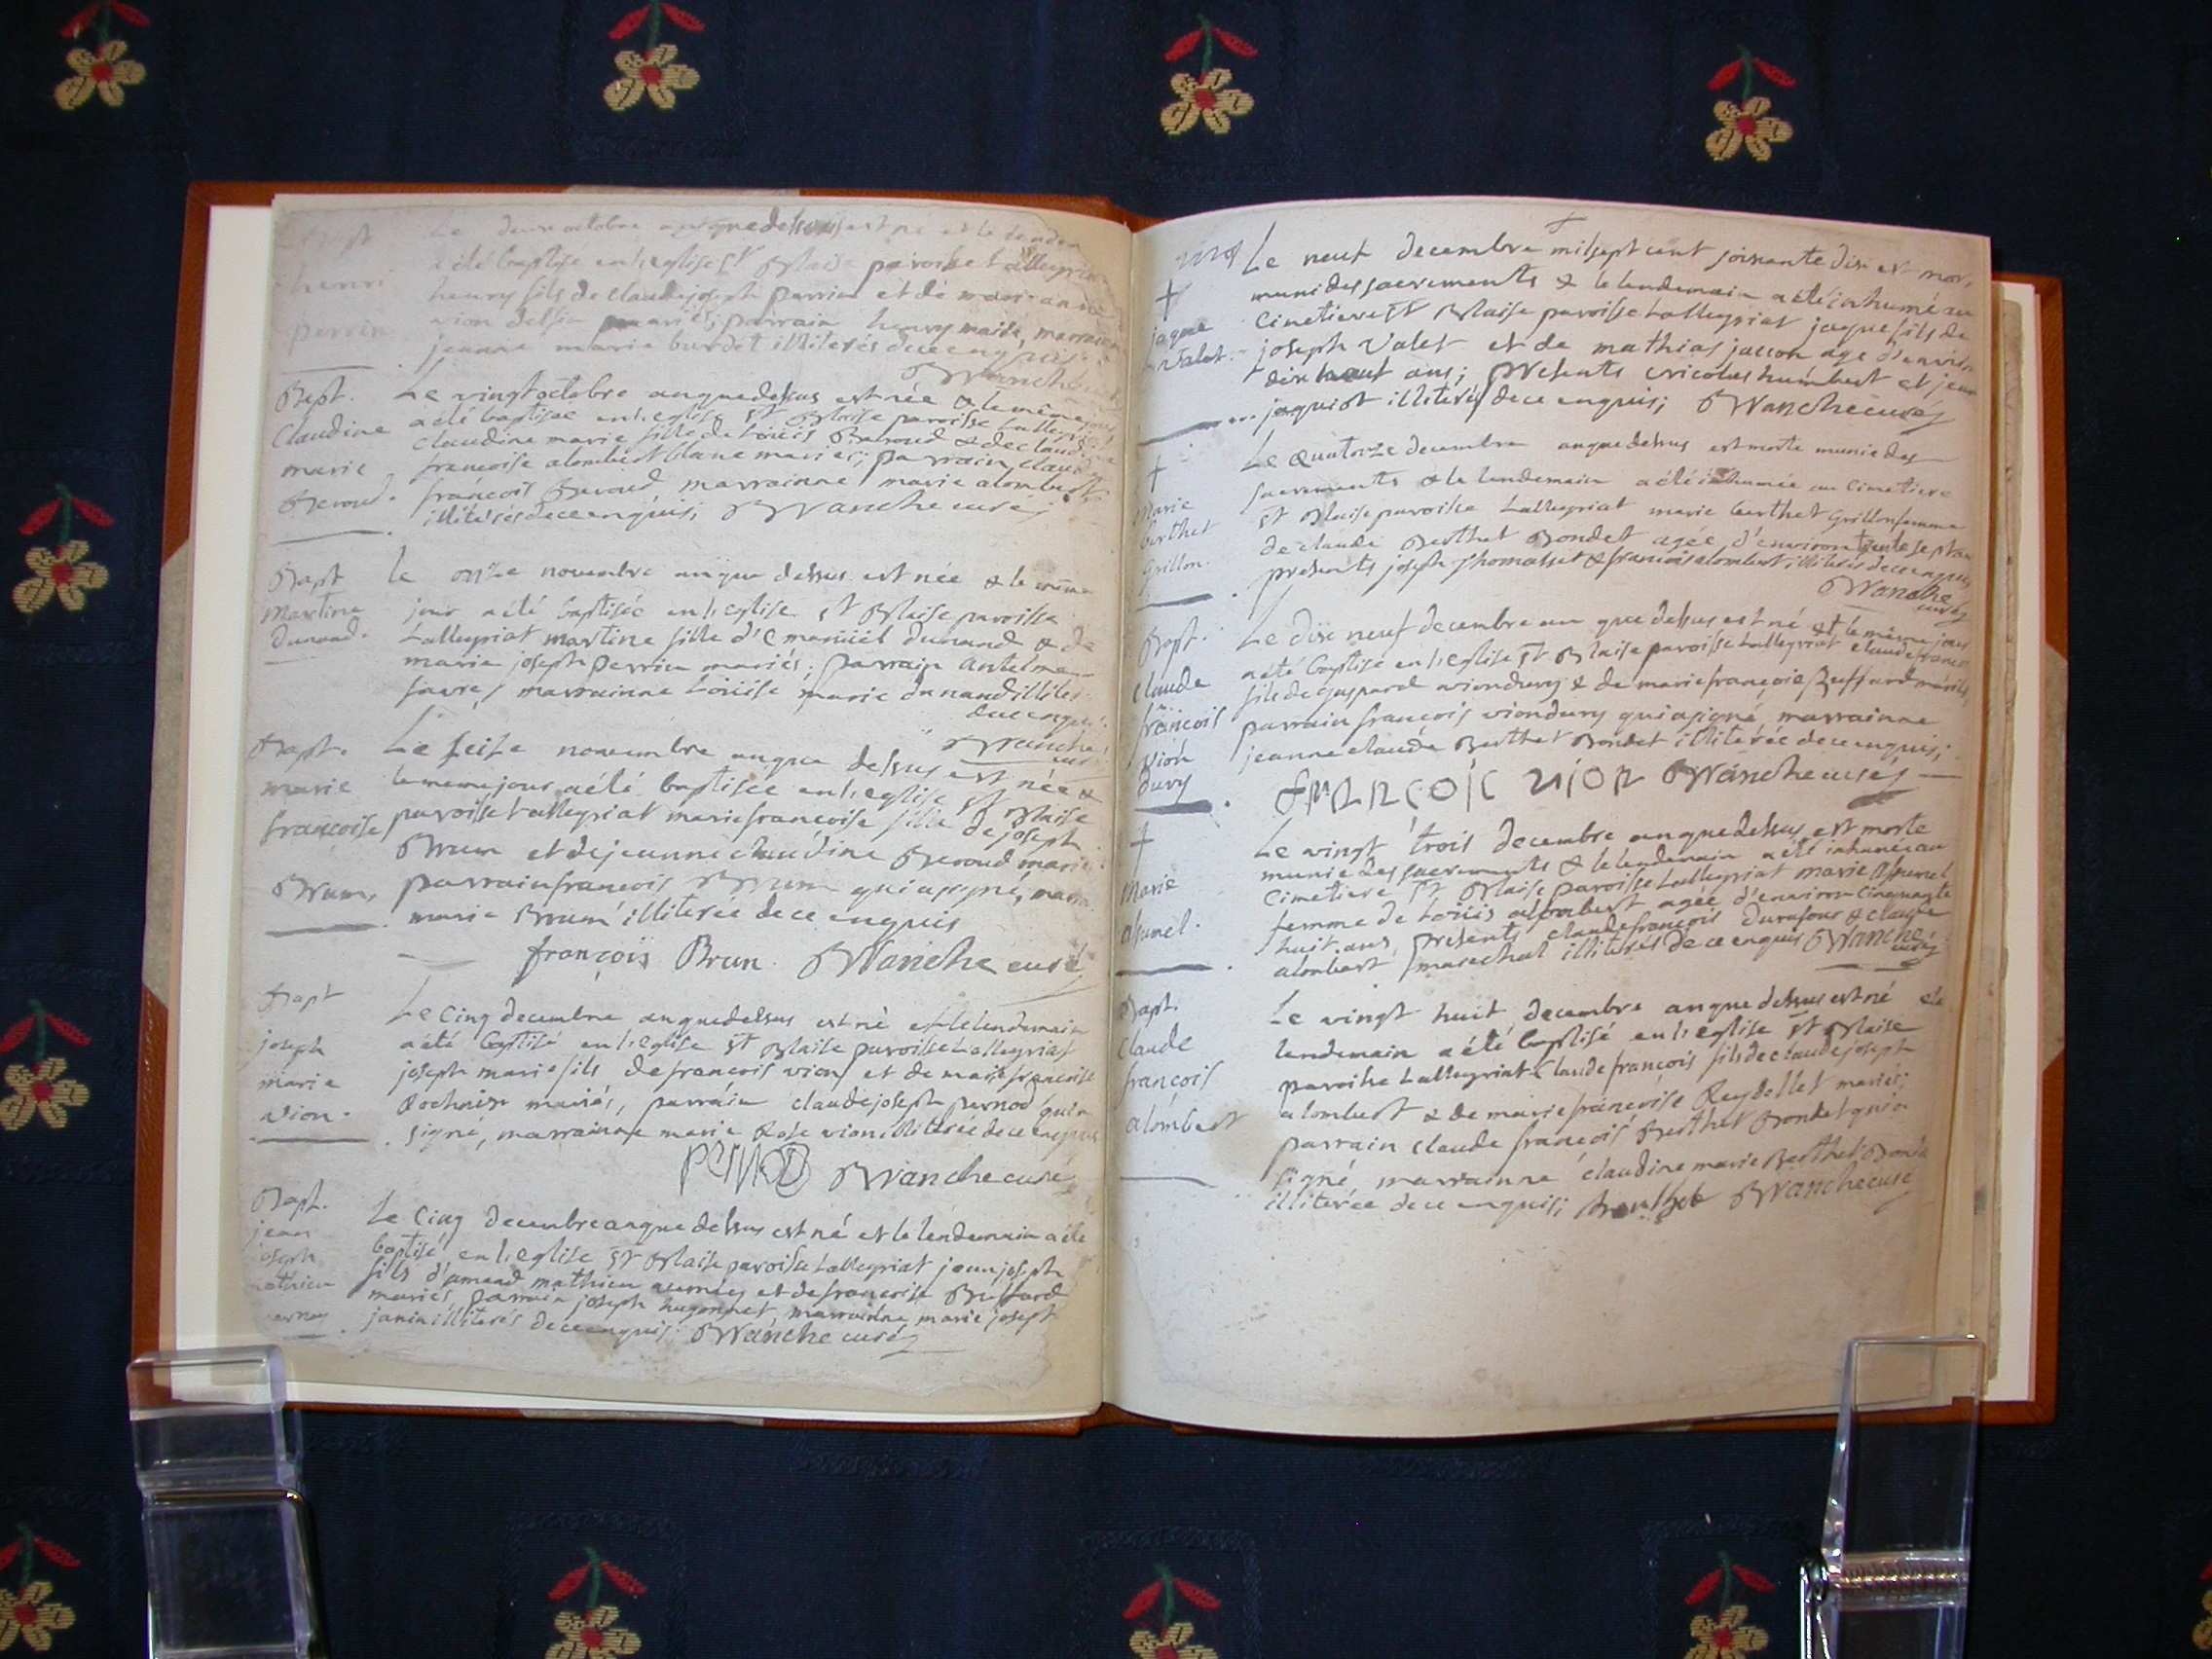 Le deux octobre an que dessus est né et le lenden
a été baptise en l'eglise St Blaise paroisse Lalleyriat
henri
henry fils de claude joseph perrin et de marie anne
perrin
parrain henry maite, marraine
jeanne marie burdet illiterés de ce enquis
Wanche
Bapt.
Le vingt octobre an que dessus est née & le même jour
Claudine
a été baptisae en l'eglise St Blaise paroisse Lalleyriat
claudine marie fille de Loüis Beroud & de claudine
marie
francoise alombert blanc mariés; parrain claude
Beroud.
françois Beroud marrainne marie alombert
illiterés de ce enquis; Wanche curé
Bapt
le onze novembre an que dessus est née & le même
Martine
jour a été baptisée en l'eglise St Blaise paroisse
Dunand.
Lalleyriat martine fille d'Emanüel Dunand & de
marie joseph perrin mariés; parrain antelme
favre, marrainne Loüise marie dunand illiter.
de ce enquis.
Wanche
curé
Bapt.
Le seise novembre an que dessus est née &
marie
le meme jour a été baptisée en l'eglise St Blaise
françoise
paroisse Lalleyriat marie francoise fille de joseph
Brun et de jeanne claudine Beroud marié
Brun,
parrain francois Brun qui a signé, marr
marie Brun illiterée de ce enquis
françois Brun. Wanche curé
Bapt
Le cinq decembre an que dessus est né et le lendemain
joseph
a été baptisé en l'eglise St Blaise paroisse Lalleyriat
marie
joseph marie fils de francois vion et de marie francoise
vion.
Rochaix mariés, parrain claude joseph pernod qui a
signé, marrainne marie Rose vion illiterée de ce enquis
pernod Wanche curé
Bapt.
Le cinq decembre an que dessus est né et le lendemain a été
jean
baptisé en l'eglise St Blaise paroisse Lalleyriat jean joseph
joseph
fils d'amand mathieu et de francoise Buffard
mathieu
mariés parrain joseph hugonnet, marrainne marie josept
janin illiterés de ce enquis; Wanche curé
Le neuf decembre mil sept cent soixante dix est mor,
muni des sacrements & le lendemain a été inhumé au
jaque
Cimetiere St Blaise paroisse Lalleyriat jaque fils de
Valet.
joseph Valet et de mathias age d'environ
dix ans; presents nicolas humbert et jean
jaquiot illiterés de ce enquis; Wanche curé
Le quatorze decembre an que dessus est morte munie des
sacrements & le lendemain a été inhumée au Cimetiere
Marie
St Blaise paroisse Lalleyriat marie berthet Grillon femme
berthet
de claude Berthet Bondet agée d'environ trente sept ans
Grillon.
presents joseph thomasset & francois alombert, illiterés de ce enquis
Wanche
curé
Bapt.
Le dix neuf decembre an que dessus est né et le même jour
a été baptisé en l'eglise St Blaise paroisse Lalleyriat claude francois
claude
fils de gaspard viondury & de marie françoise Buffard mariés,
françois
parrain françois viondury qui a signé, marrainne
vion
jeanne claude Berthet Bondet illiterée de ce enquis;
dury
françois vion Wanche curé
Le vingt trois decembre an que dessus est morte
munie des sacrements & le lendemain a été inhumée au
Marie
cimetiere St Blaise paroisse Lalleyriat marie
femme de Loüis alombert agée d'environ cinquante
huit ans, presents claude françois Durafour & claude
alombert marechal illiterés de ce enquis Wanche
curé
Bapt.
Le vingt huit decembre an que dessus est né & le
claude
lendemain a été baptisé en l'eglise St Blaise
françois
paroisse Lalleyriat Claude françois fils de claude joseph
alombert
alombert & de marie françoise Reydellet mariés;
parrain claude françois Berthet Bondet qui a
signé, marrainne claudine marie Berthet Bondet
illiterée de ce enquis; berthet Wanche curé